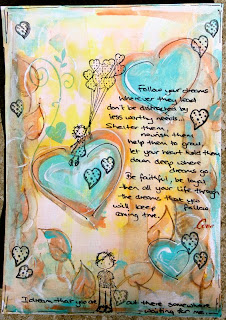 Follow your dreams
Wherever they lead
don't be distracted by
less worthy needs...
Shelter them,
nourish them
help them to grow,
let your heart hold them
down deep where
dreams go.
Be faithful, be loyal
then all your life through
the dreams that you
will keep follow
coming true.
I dream that you are out there somewhere
waiting for me